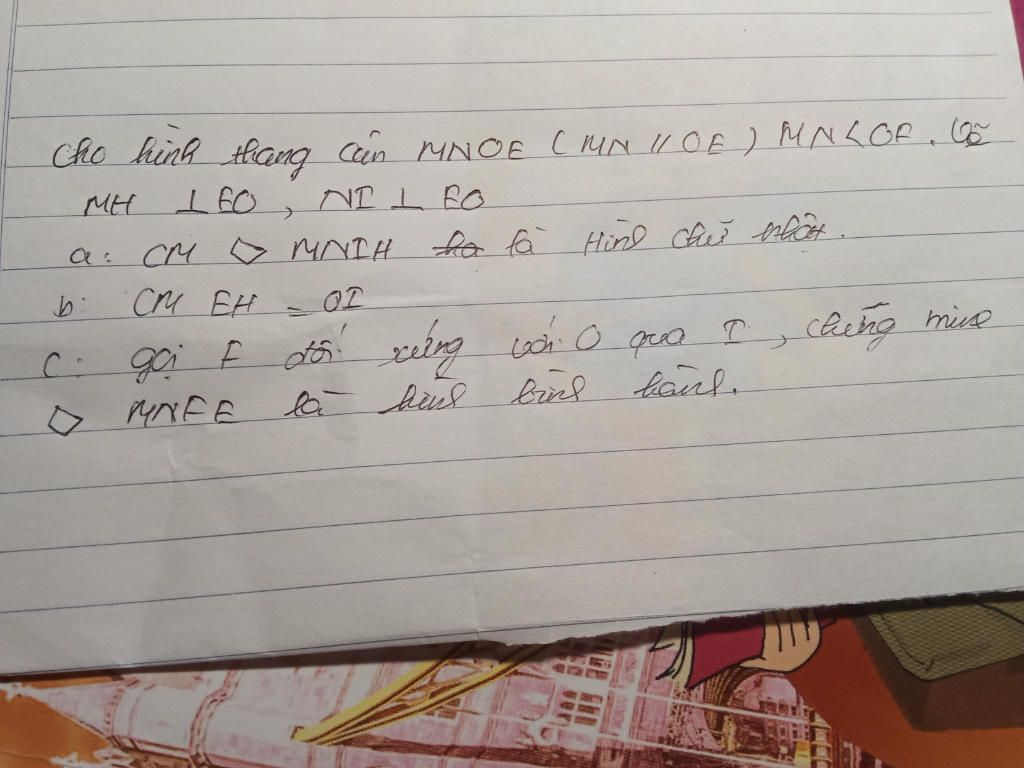 Cho hình thang cân MNOE (MN // OE) MN < OE. Vẽ
MH ⊥ EO, NI ⊥ EO
a: CM ◇ MNIH là Hình chữ nhật.
b: CM EH = OI
c: gọi F đối xứng với O qua I, chứng minh
◇ MNFE là hình bình hành.